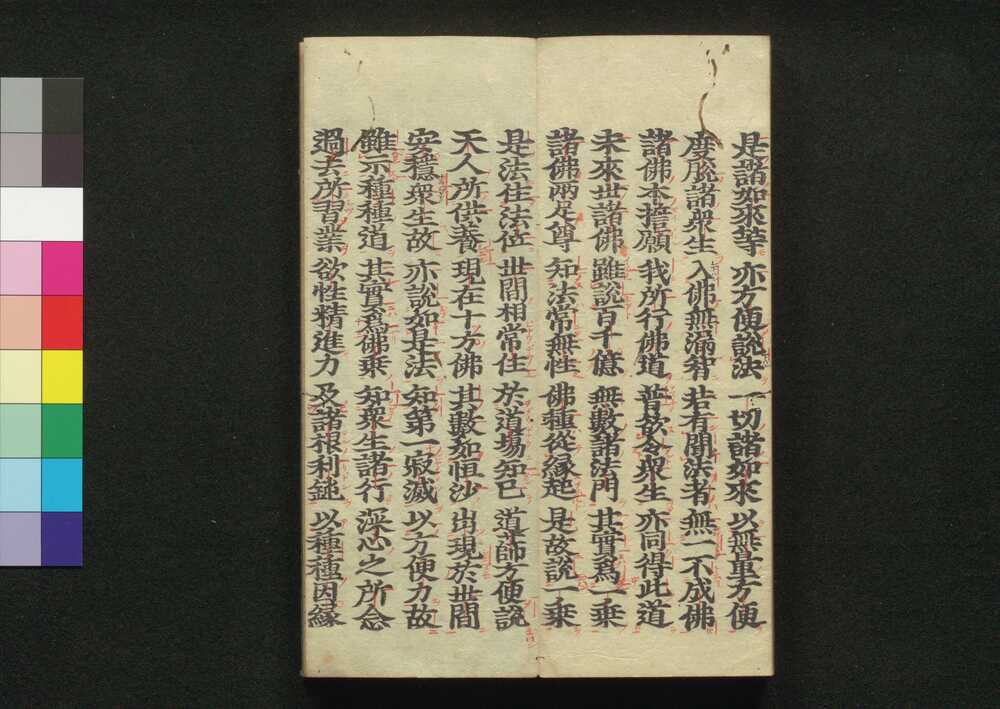 是諸如來等　亦方便説法　一切諸如來　以無量方便
度脱諸衆生　入佛無漏智　若有聞法者　無一不成佛
諸佛本擔願　我所行佛道　普欲令衆生　亦同得此道
未來世諸佛　雖説百千億　無數諸法門　其實爲一乘
諸佛兩足尊　知法常無性　佛種從縁起　是故説一乘
是法住法位　世間相常住　於道場知已　導師方便説
天人所供養　現在十方佛　其數如恒沙　出現於世間
安穩衆生故　亦説如是法　知第一寂滅　以方便力故
雖示種種道　其實爲佛乘　知衆生諸行　深心之所念
過去所習業　欲性精進力　及諸根利鈍　以種種因縁